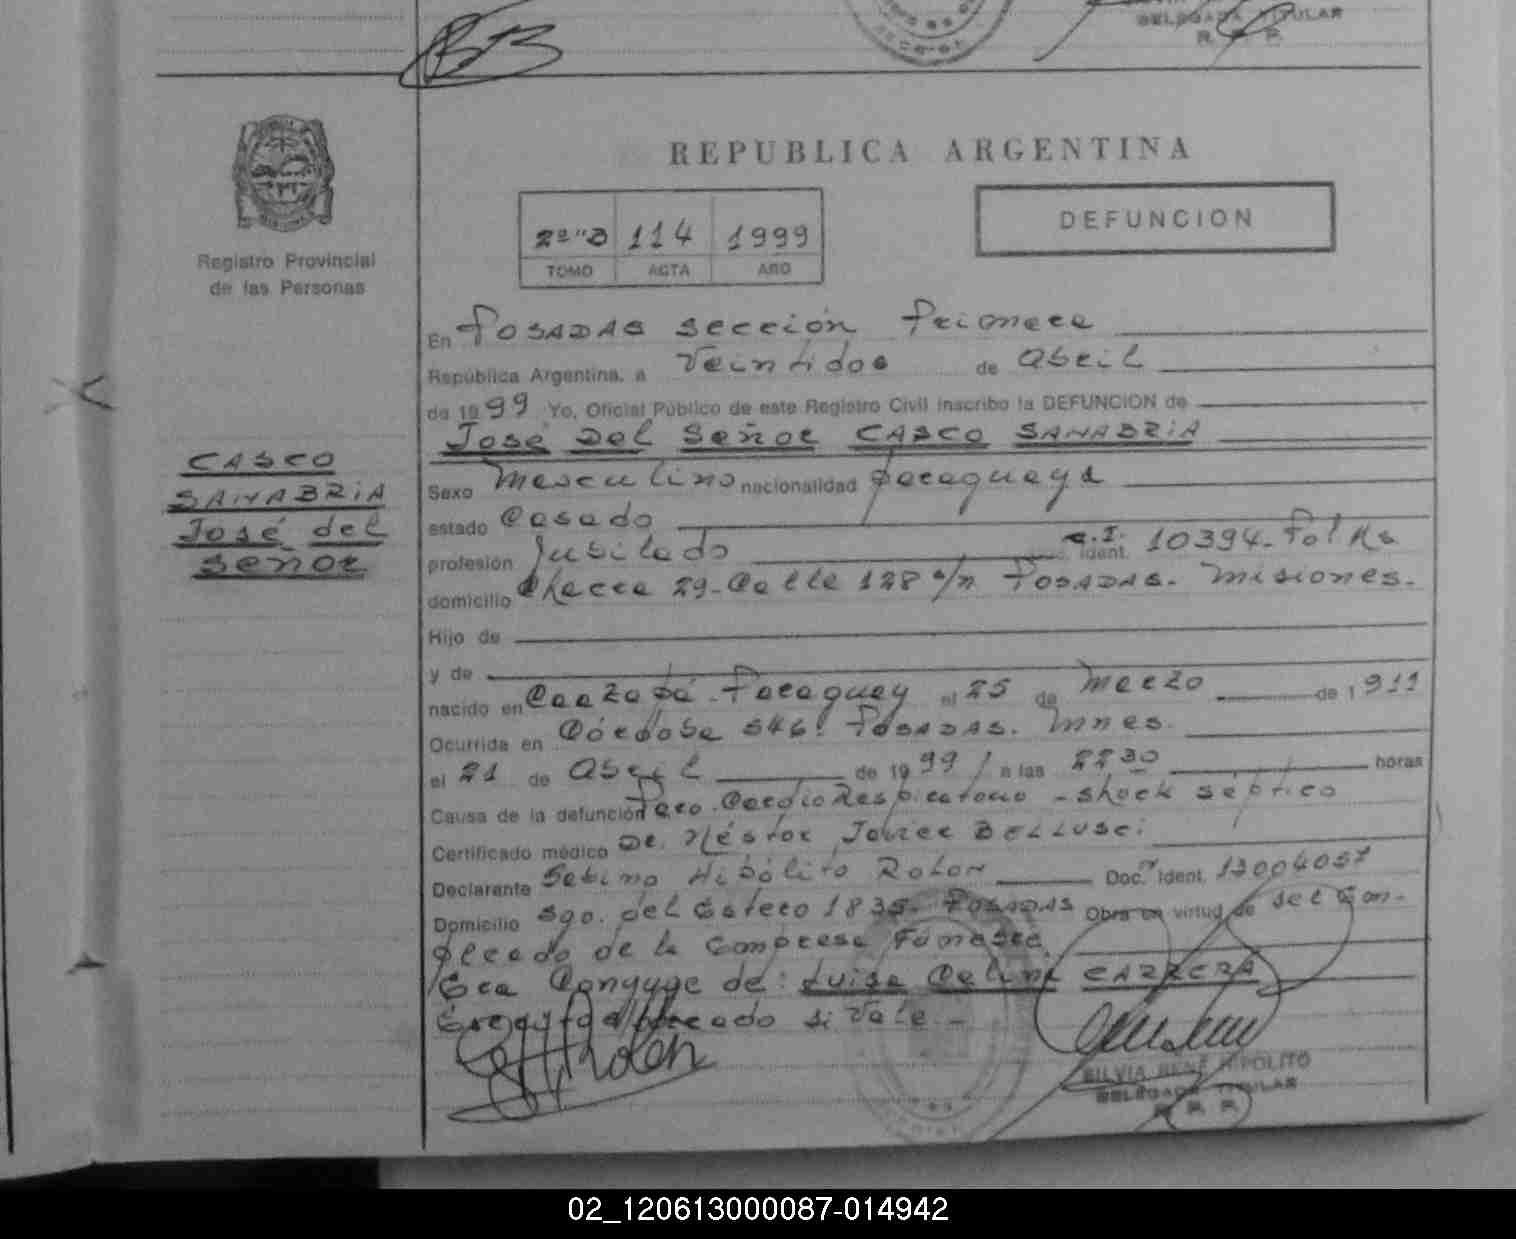 DELEGADA TITULAR
R. P. P.
REPUBLICA ARGENTINA
Registro Provincial
de las Personas
2º"B 114 1999
TOMO ACTA AÑO
DEFUNCION
En POSADAS sección Primera
República Argentina, a Veintidos de Abril
de 1999 Yo, Oficial Público de este Registro Civil inscribo la DEFUNCION de
José Del Señor CASCO SANABRIA
CASCO
SANABRIA
José del
Señor
Sexo Masculino nacionalidad paraguaya
estado Casado
profesión Jubilado C.I. Ident. 10394-Pol Ms
domicilio Chacra 29-Calle 128 s/n POSADAS. Misiones.
Hijo de
y de
nacido en Caazapá-Paraguay el 25 de Marzo de 1911
Ocurrida en Córdoba 546. POSADAS. Mnes.
el 21 de Abril de 1999 a las 2230 horas
Causa de la defunción Paro CardioRespiratorio - shock septico
Certificado médico Dr. Néstor Javier BELLUSCI
Declarante Sabino Hipólito Rolon Doc. Ident. 13004057
Domicilio Sgo. del Estero 1835. POSADAS Obra en virtud de ser Em-
pleado de la Empresa Fúnebre
Era Conyuge de: Luisa Celina CARRERA
si Vale.-
SILVIA RENE HIPOLITO
DELEGADA TITULAR
R. P. P.
02_120613000087-014942